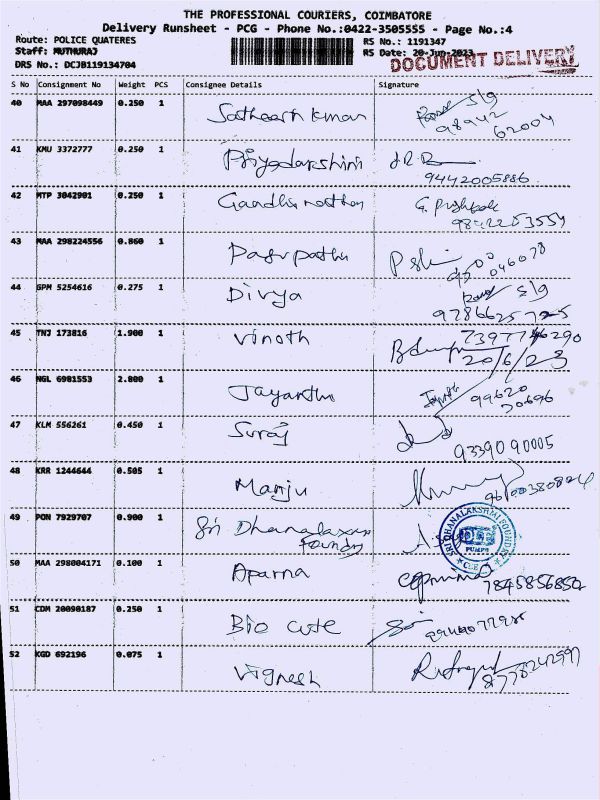 THE PROFESSIONAL COURIERS, COIMBATORE
Delivery Runsheet - PCG - Phone No.:0422-3505555 - Page No.:4
Route: POLICE QUATERES
RS No.: 1191347
Staff: MUTHURAJ
RS Date: 20-Jun-2023
DRS No.: DCJB119134704
DOCUMENT DELIVERY
S No Consignment No Weight PCS Consignee Details Signature
40 MAA 297098449 0.250 1 Satheesh kumar
98942 62004
41 KMU 3372777 0.250 1 Priyadarshini
9442005886
42 MTP 3042901 0.250 1 Gandhi nathan
43 MAA 298224556 0.860 1 Pasupathi
44 GPM 5254616 0.275 1 Divya
45 TNJ 173816 1.900 1 Vinoth
20/6/23
46 NGL 6981553 2.800 1 Jayanthi
99620
70696
47 KLM 556261 0.450 1 Suraj
9339090005
48 KRR 1244644 0.505 1 Manju
49 PON 7929707 0.900 1 Sri Dhanalaxmi
Foundry
SRI DHANALAKSHMI FOUNDRY
PUMPS
CBE
50 MAA 298004171 0.100 1 Aparna
7845856852
51 CDM 20090187 0.250 1 Bio cute
52 KGD 692196 0.075 1 Vignesh
8778242597